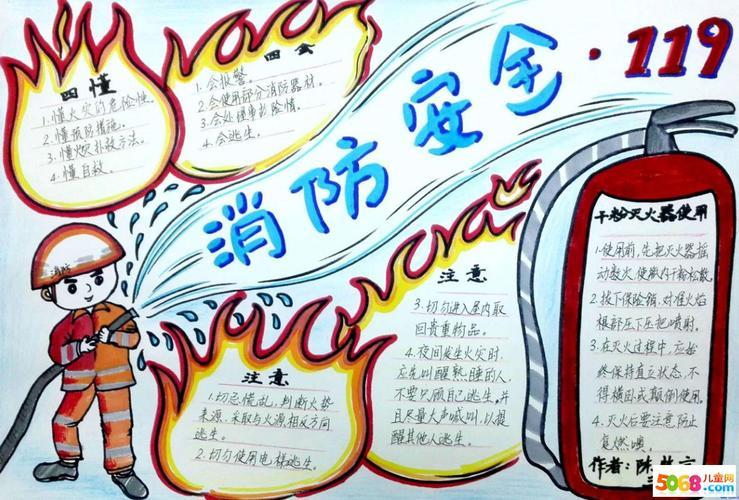 消防安全·119
四懂
1.懂火灾的危险性。
2.懂预防措施。
3.懂火灾扑救方法。
4.懂自救。
四会
1.会报警。
2.会使用部分消防器材。
3.会处理事故险情。
4.会逃生。
消防
注意
1.切忌慌乱,判断火势
来源,采取与火源相反方向
逃生。
2.切勿使用电梯逃生。
注意
3.切勿进入屋内取
回贵重物品。
4.夜间发生火灾时,
应先叫醒熟睡的人,
不要只顾自己逃生。并
且尽量大声喊叫,以提
醒其他人逃生。
干粉灭火器使用
1.使用前,先把灭火器摇
动数次,使瓶内干粉松散。
2.拔下保险销,对准火焰
根部压下压把喷射。
3.在灭火过程中,应始
终保持直立状态,不
得横卧或颠倒使用。
4.灭火后要注意防止
复燃噢。
作者:陈
5068儿童网
www.5068.com